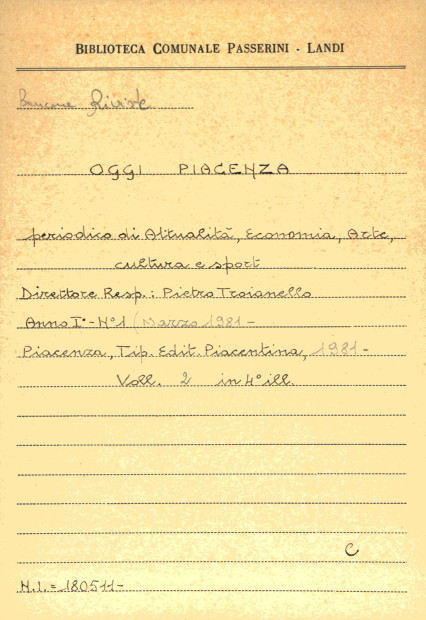 BIBLIOTECA COMUNALE PASSERINI - LANDI
Riviste
OGGI PIACENZA
periodico di Attualità, Economia, Arte,
cultura e sport
Direttore Resp.: Pietro Troianello
Anno I° - N° 1 (Marzo 1981 -
Piacenza, Tip. Edit. Piacentina, 1981 -
Voll. 2 in 4° ill.
C
N.I. = 180511 -